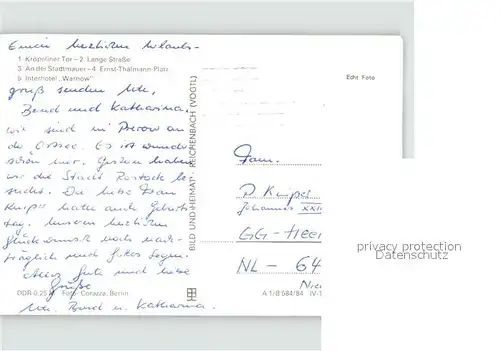 Einen herzlichen Urlaubs-
1 Kröpeliner Tor – 2 Lange Straße
3 An der Stadtmauer – 4 Ernst-Thälmann-Platz
5 Interhotel „Warnow"
gruß senden Ute,
Bernd und Katharina.
wir sind in Prerow an
der Ostsee. Es ist wunder
schön hier. Gestern haben
wir die Stadt Rostock be
sucht. Die liebe Frau
Knips hatte auch Geburts
tag. Unseren herzlichen
Glückwunsch noch nach-
träglich und Gottes Segen.
Alles Gute und liebe
Grüße
DDR 0,25 M Foto: Corazza, Berlin
Ute, Bernd u. Katharina.
BILD UND HEIMAT · REICHENBACH (VOGTL)
Echt Foto
Fam.
P Knips
Johannes XXIII
GG-Heer
NL - 64
Nie
A 1/B 684/84 IV-1
privacy protection
Datenschutz